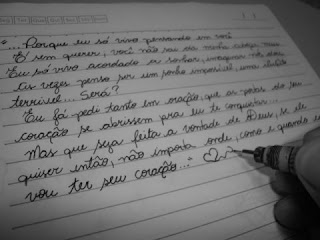 "... Porque eu só vivo pensando em você
É sem querer, você não sai da minha cabeça mais
Eu só vivo acordado a sonhar, imaginar nós dois
Às vezes penso ser um sonho impossível, uma ilusão
terrível... Será?
Eu já pedi tanto em oração, que as portas do seu
coração se abrissem pra eu te conquistar...
Mas que seja feita a vontade de Deus, se ele
quiser então, não importa onde, como e quando eu
vou ter seu coração..."